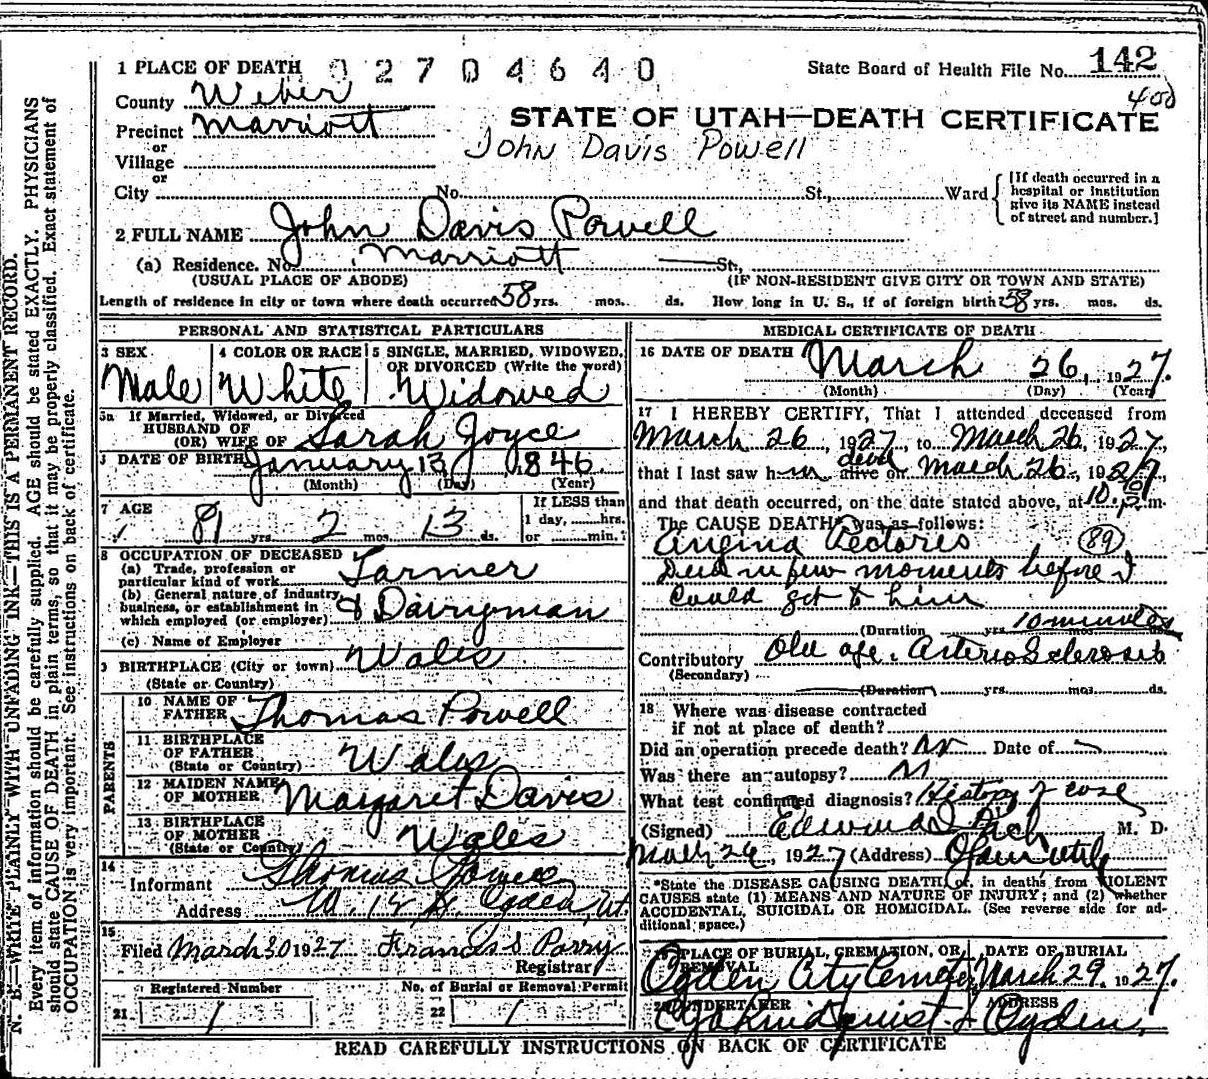 N. B.—WRITE PLAINLY WITH UNFADING INK—THIS IS A PERMANENT RECORD.
Every item of information should be carefully supplied. AGE should be stated EXACTLY. PHYSICIANS
should state CAUSE OF DEATH in plain terms, so that it may be properly classified. Exact statement of
OCCUPATION is very important. See instructions on back of certificate.
1 PLACE OF DEATH 02704640
State Board of Health File No. 142
400
County Weber
STATE OF UTAH—DEATH CERTIFICATE
Precinct Marriott
John Davis Powell
or
Village
or
City No. St., Ward
[If death occurred in a
hospital or institution
give its NAME instead
of street and number.]
2 FULL NAME John Davis Powell
(a) Residence. No. Marriott St.,
(USUAL PLACE OF ABODE) (IF NON-RESIDENT GIVE CITY OR TOWN AND STATE)
Length of residence in city or town where death occurred 58 yrs. mos. ds. How long in U. S., if of foreign birth? 58 yrs. mos. ds.
PERSONAL AND STATISTICAL PARTICULARS
3 SEX 4 COLOR OR RACE 5 SINGLE, MARRIED, WIDOWED,
OR DIVORCED (Write the word)
Male White Widowed
5a If Married, Widowed, or Divorced
HUSBAND OF
(OR) WIFE OF Sarah Joyce
DATE OF BIRTH January 13, 1846
(Month) (Day) (Year)
7 AGE 81 yrs. 2 mos. 13 ds.
If LESS than
1 day, hrs.
or min.?
8 OCCUPATION OF DECEASED
(a) Trade, profession or
particular kind of work Farmer
(b) General nature of industry
business, or establishment in
which employed (or employer) & Dairyman
(c) Name of Employer
9 BIRTHPLACE (City or town) Wales
(State or Country)
PARENTS
10 NAME OF
FATHER Thomas Powell
11 BIRTHPLACE
OF FATHER
(State or Country) Wales
12 MAIDEN NAME
OF MOTHER Margaret Davis
13 BIRTHPLACE
OF MOTHER
(State or Country) Wales
14
Informant Thomas Powell
Address Ogden, Ut.
15
Filed March 30 1927 Francis S Parry
Registrar
Registered Number No. of Burial or Removal Permit
21. 1 22 1
MEDICAL CERTIFICATE OF DEATH
16 DATE OF DEATH March 26, 1927.
(Month) (Day) (Year)
17 I HEREBY CERTIFY, That I attended deceased from
March 26, 1927, to March 26, 1927,
that I last saw him dead alive on March 26, 1927
and that death occurred, on the date stated above, at 10 P. m.
The CAUSE DEATH* was as follows:
Angina Pectores 89
Died in few moments before I
could get to him
(Duration yrs. 10 minutes mos. ds.
Contributory Old age. Arterio Sclerosis
(Secondary)
(Duration) yrs. mos. ds.
18 Where was disease contracted
if not at place of death?
Did an operation precede death? No Date of
Was there an autopsy? No
What test confirmed diagnosis? History of case
(Signed) Edward Rich M. D.
March 26, 1927 (Address) Ogden Utah
*State the DISEASE CAUSING DEATH, or, in deaths from VIOLENT
CAUSES state (1) MEANS AND NATURE OF INJURY; and (2) whether
ACCIDENTAL, SUICIDAL OR HOMICIDAL. (See reverse side for ad-
ditional space.)
19 PLACE OF BURIAL, CREMATION, OR
REMOVAL
DATE OF BURIAL
Ogden City Cemetery March 29. 1927.
20 UNDERTAKER ADDRESS
Ogden,
READ CAREFULLY INSTRUCTIONS ON BACK OF CERTIFICATE